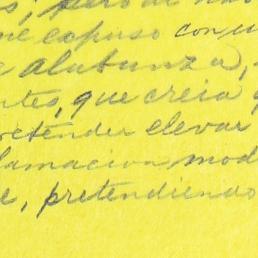 me expuso con
alabanza,
que creia
retender elevar
lamacion mod
e, pretendiendo